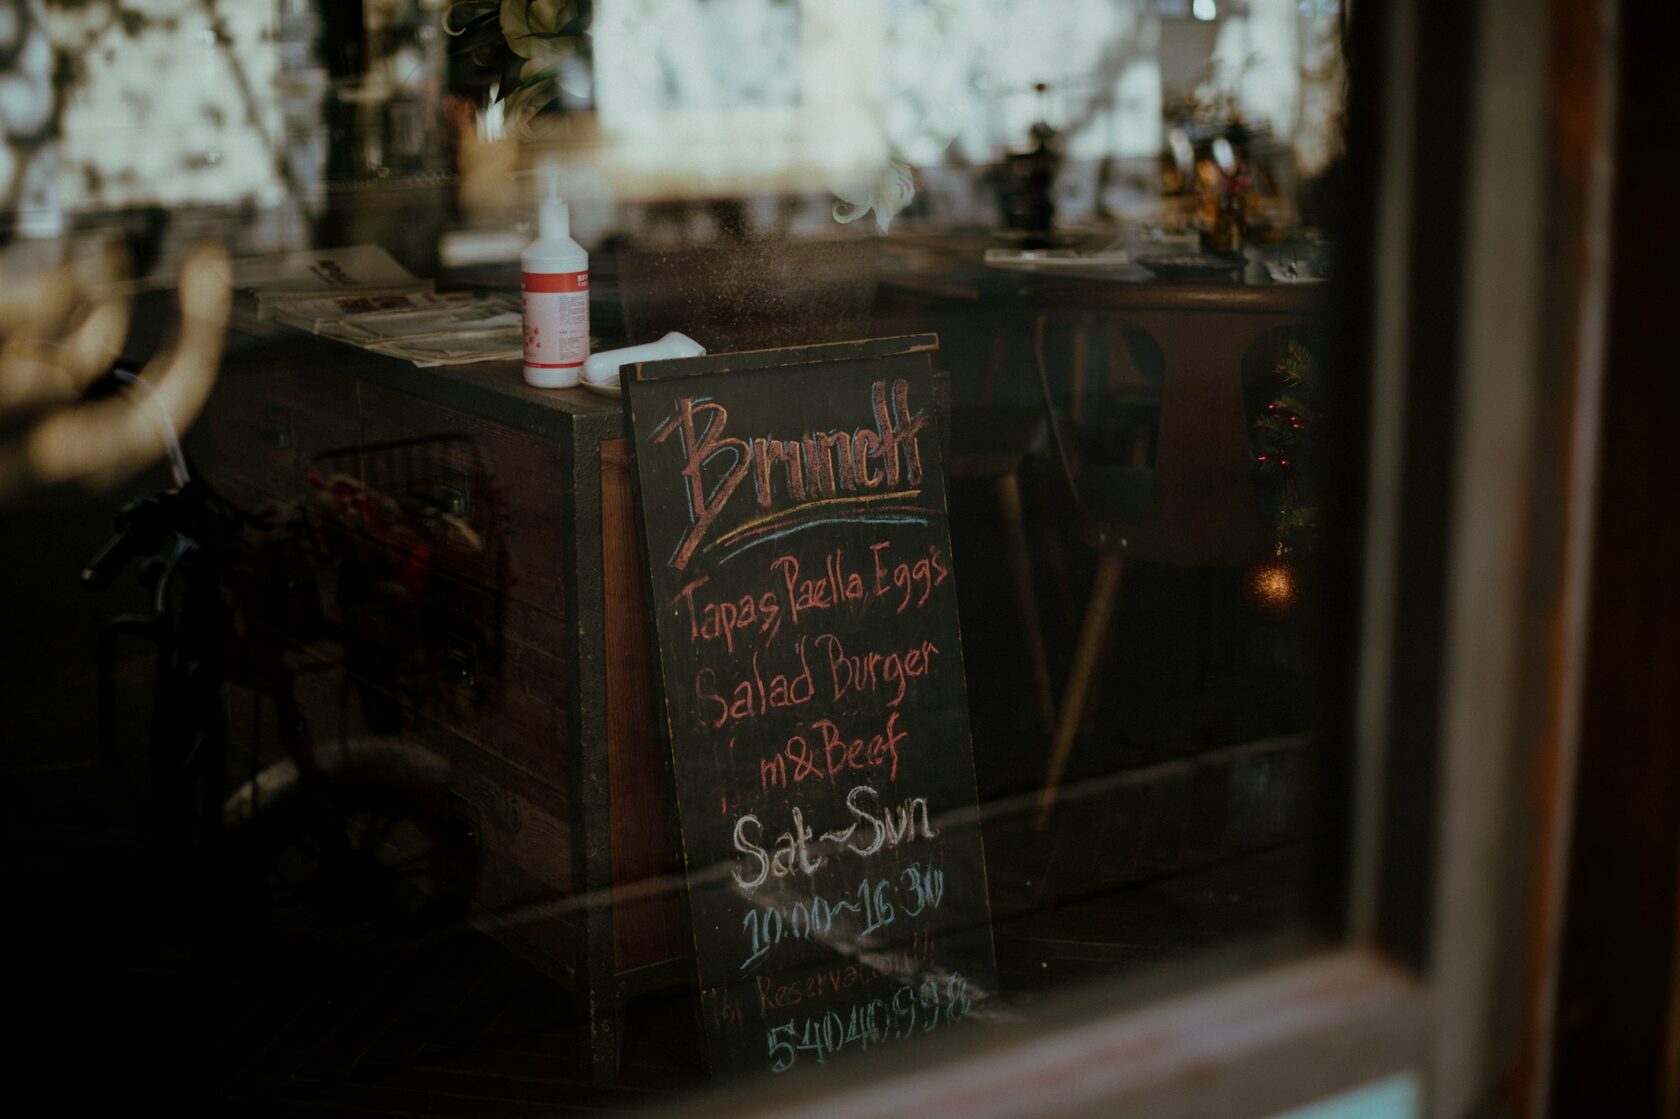 Brunch
Tapas, Paella, Eggs
Salad Burger
Ham & Beef
Sat~Sun
10:00~16:30
For Reservation!!!
54040998